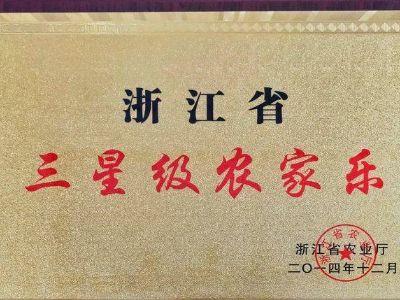 浙江省
三星级农家乐
浙江省农业厅
二〇一四年十二月